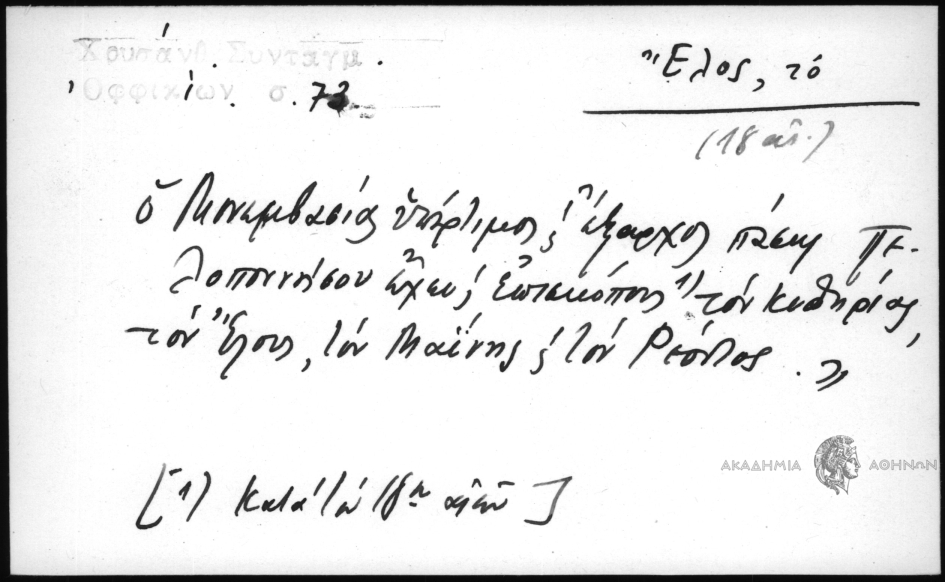 Χρυσάνθ. Συνταγμ.
Ὀφφικίων σ. 73
Ἕλος, τό
(18 αἰ.)
ὁ Μονεμβασίας ὑπέρτιμος ἔξαρχος πάσης Πε-
λοποννήσου εἶχεν ἐπισκόπους 1) τὸν Κυθηρίας,
τὸν Ἕλους, τὸν Μαΐνης τὸν Ρέοντος. »
[1) Κατὰ τὸν 18ον αἰῶνα]
ΑΚΑΔΗΜΙΑ ΑΘΗΝΩΝ